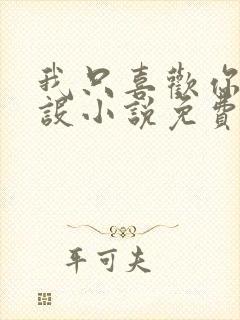 我只喜歡你
設小說免費
平可夫